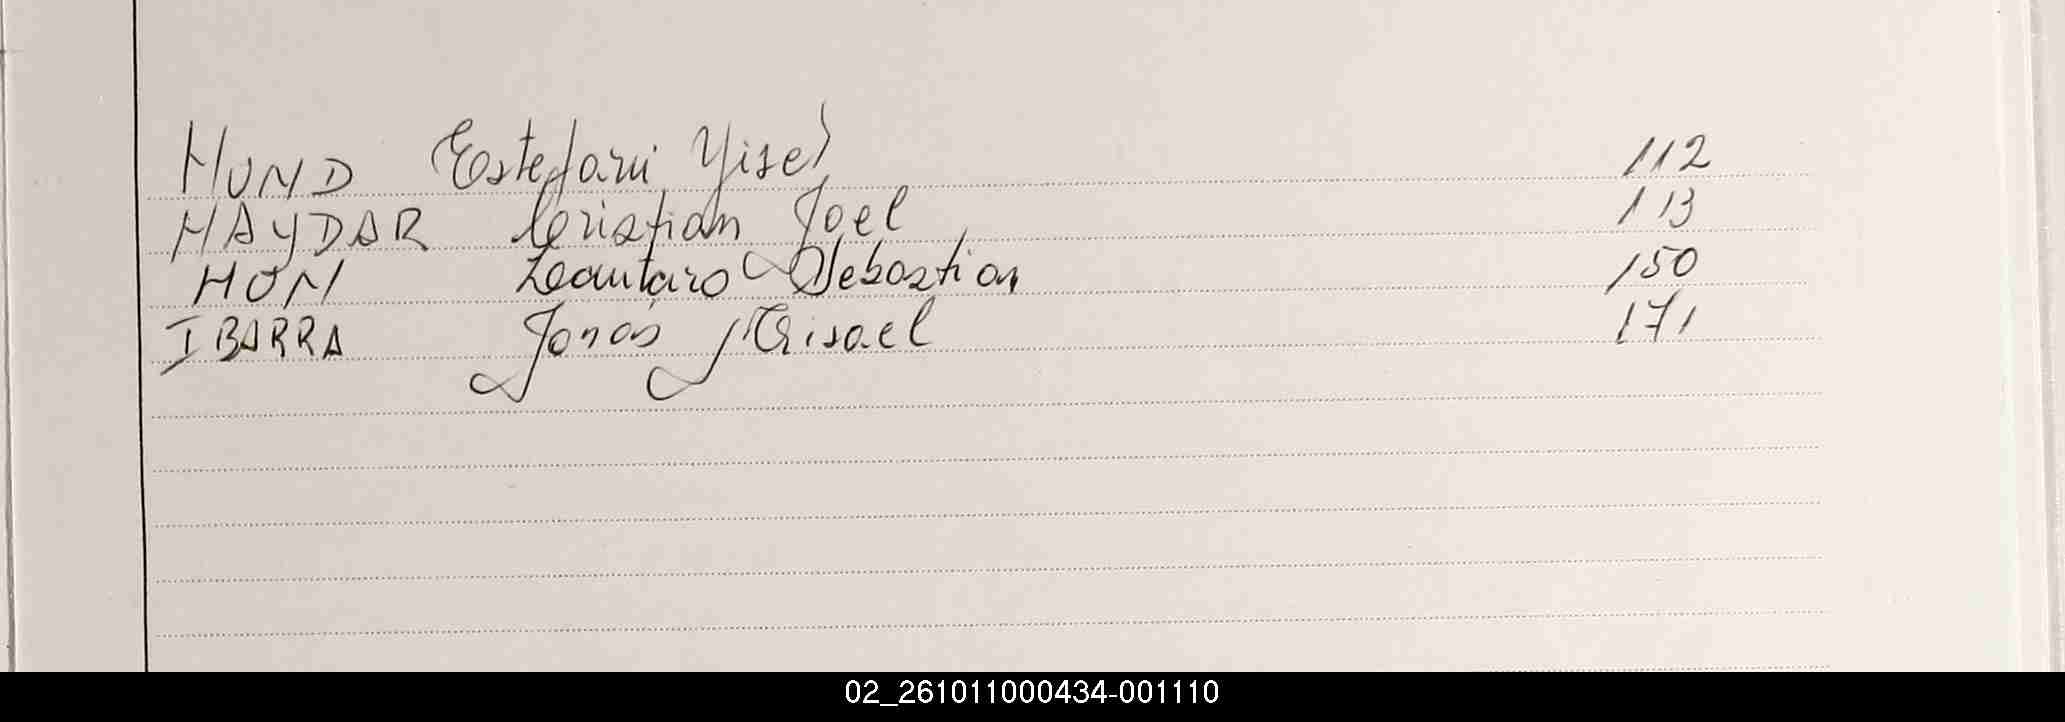 HUND Estefani Yisel 112
HAYDAR Cristian Joel 113
HON Leautaro Sebastian 150
IBARRA Jonás Misael 171
02_261011000434-001110